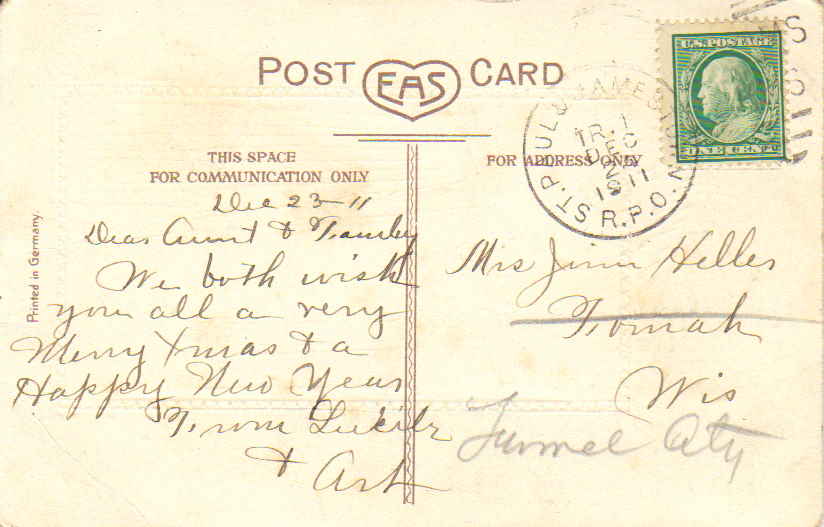 POST EAS CARD
THIS SPACE
FOR COMMUNICATION ONLY
FOR ADDRESS ONLY
Printed in Germany.
Dec 23-11
Dear Aunt & Family
We both wish
you all a very
Merry Xmas & a
Happy New Year
From Lucile
& Art
U.S. POSTAGE
ONE CENT
ST. PAUL & JAMES
TR. 1
DEC
1911
R.P.O.
Mrs Jim Heller
Tomah
Wis
Tunnel City